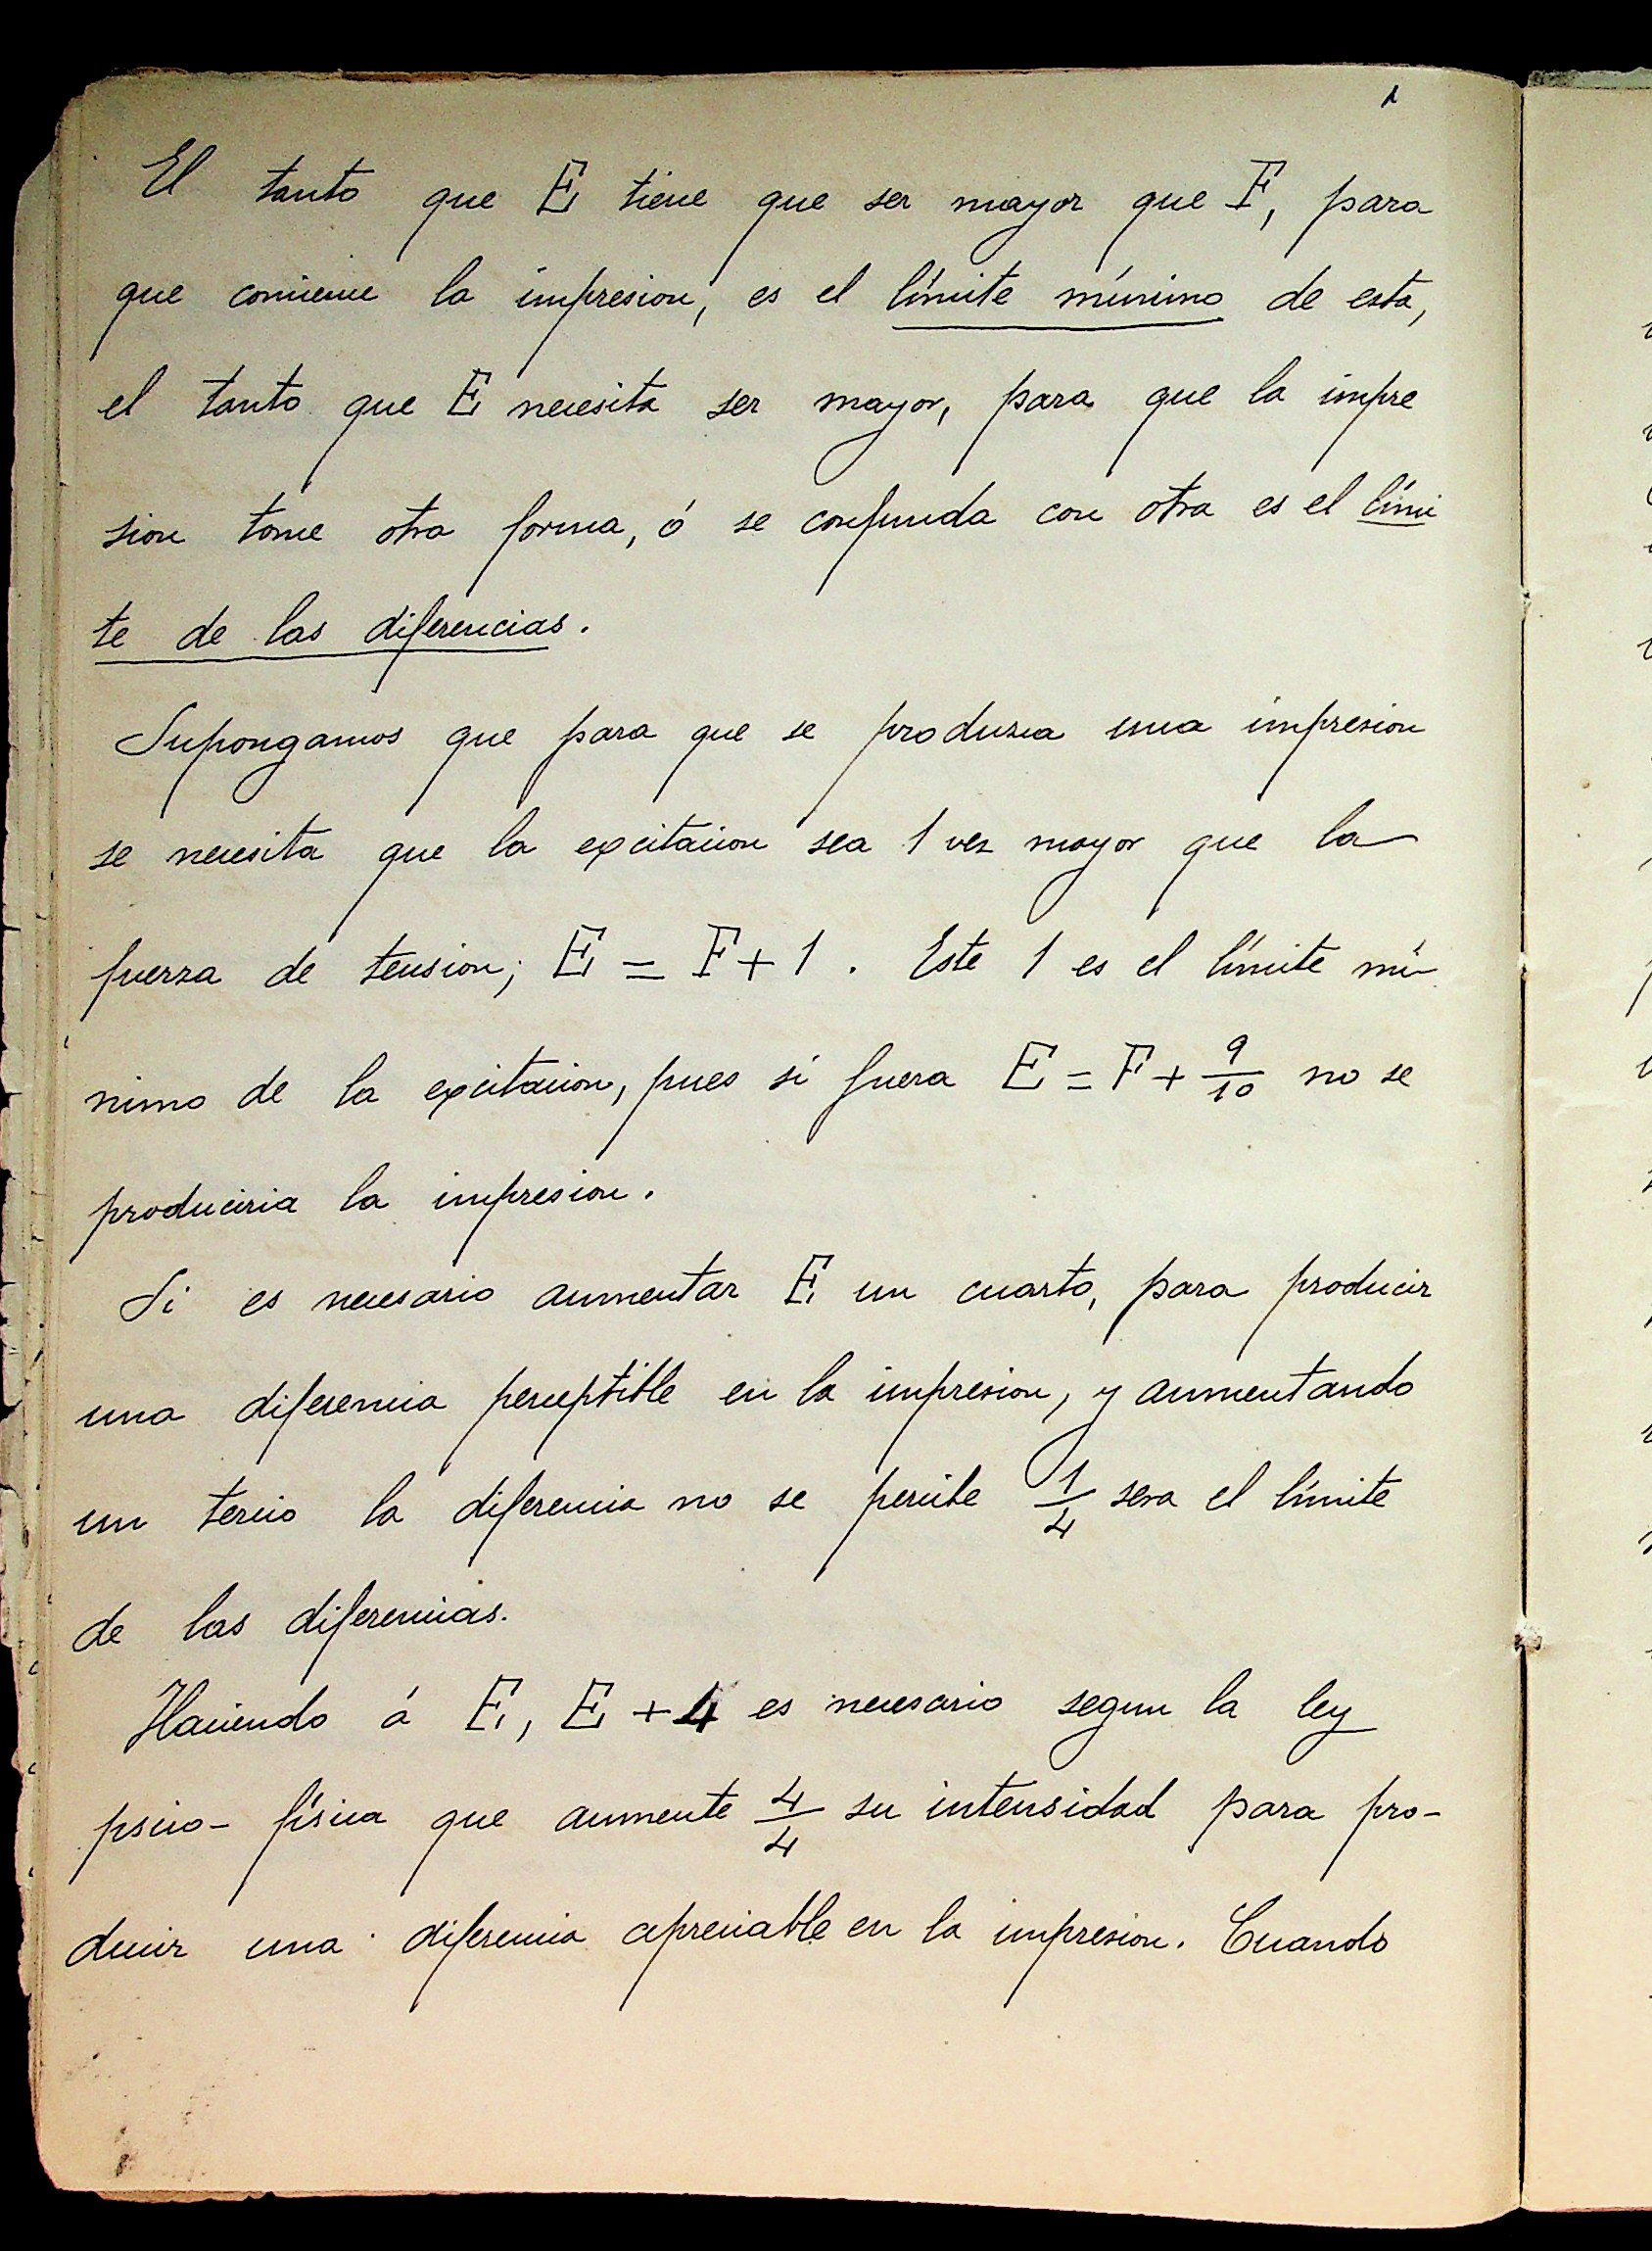 El tanto que E tiene que ser mayor que F, para
que comience la impresion, es el límite mínimo de esta,
el tanto que E necesita ser mayor, para que la impre
sion tome otra forma, ó se confunda con otra es el lími
te de las diferencias.
Supongamos que para que se produzca una impresion
se necesita que la excitacion sea 1 vez mayor que la
fuerza de tension; E = F + 1. Este 1 es el límite mí-
nimo de la excitacion, pues si fuera E = F + 9/10 no se
produciria la impresion.
Si es necesario aumentar E un cuarto, para producir
una diferencia perceptible en la impresion, y aumentando
un tercio la diferencia no se percibe 1/4 sera el límite
de las diferencias.
Haciendo á E, E + 4 es necesario segun la ley
psico-física que aumente 4/4 su intensidad para pro-
ducir una diferencia apreciable en la impresion. Cuando